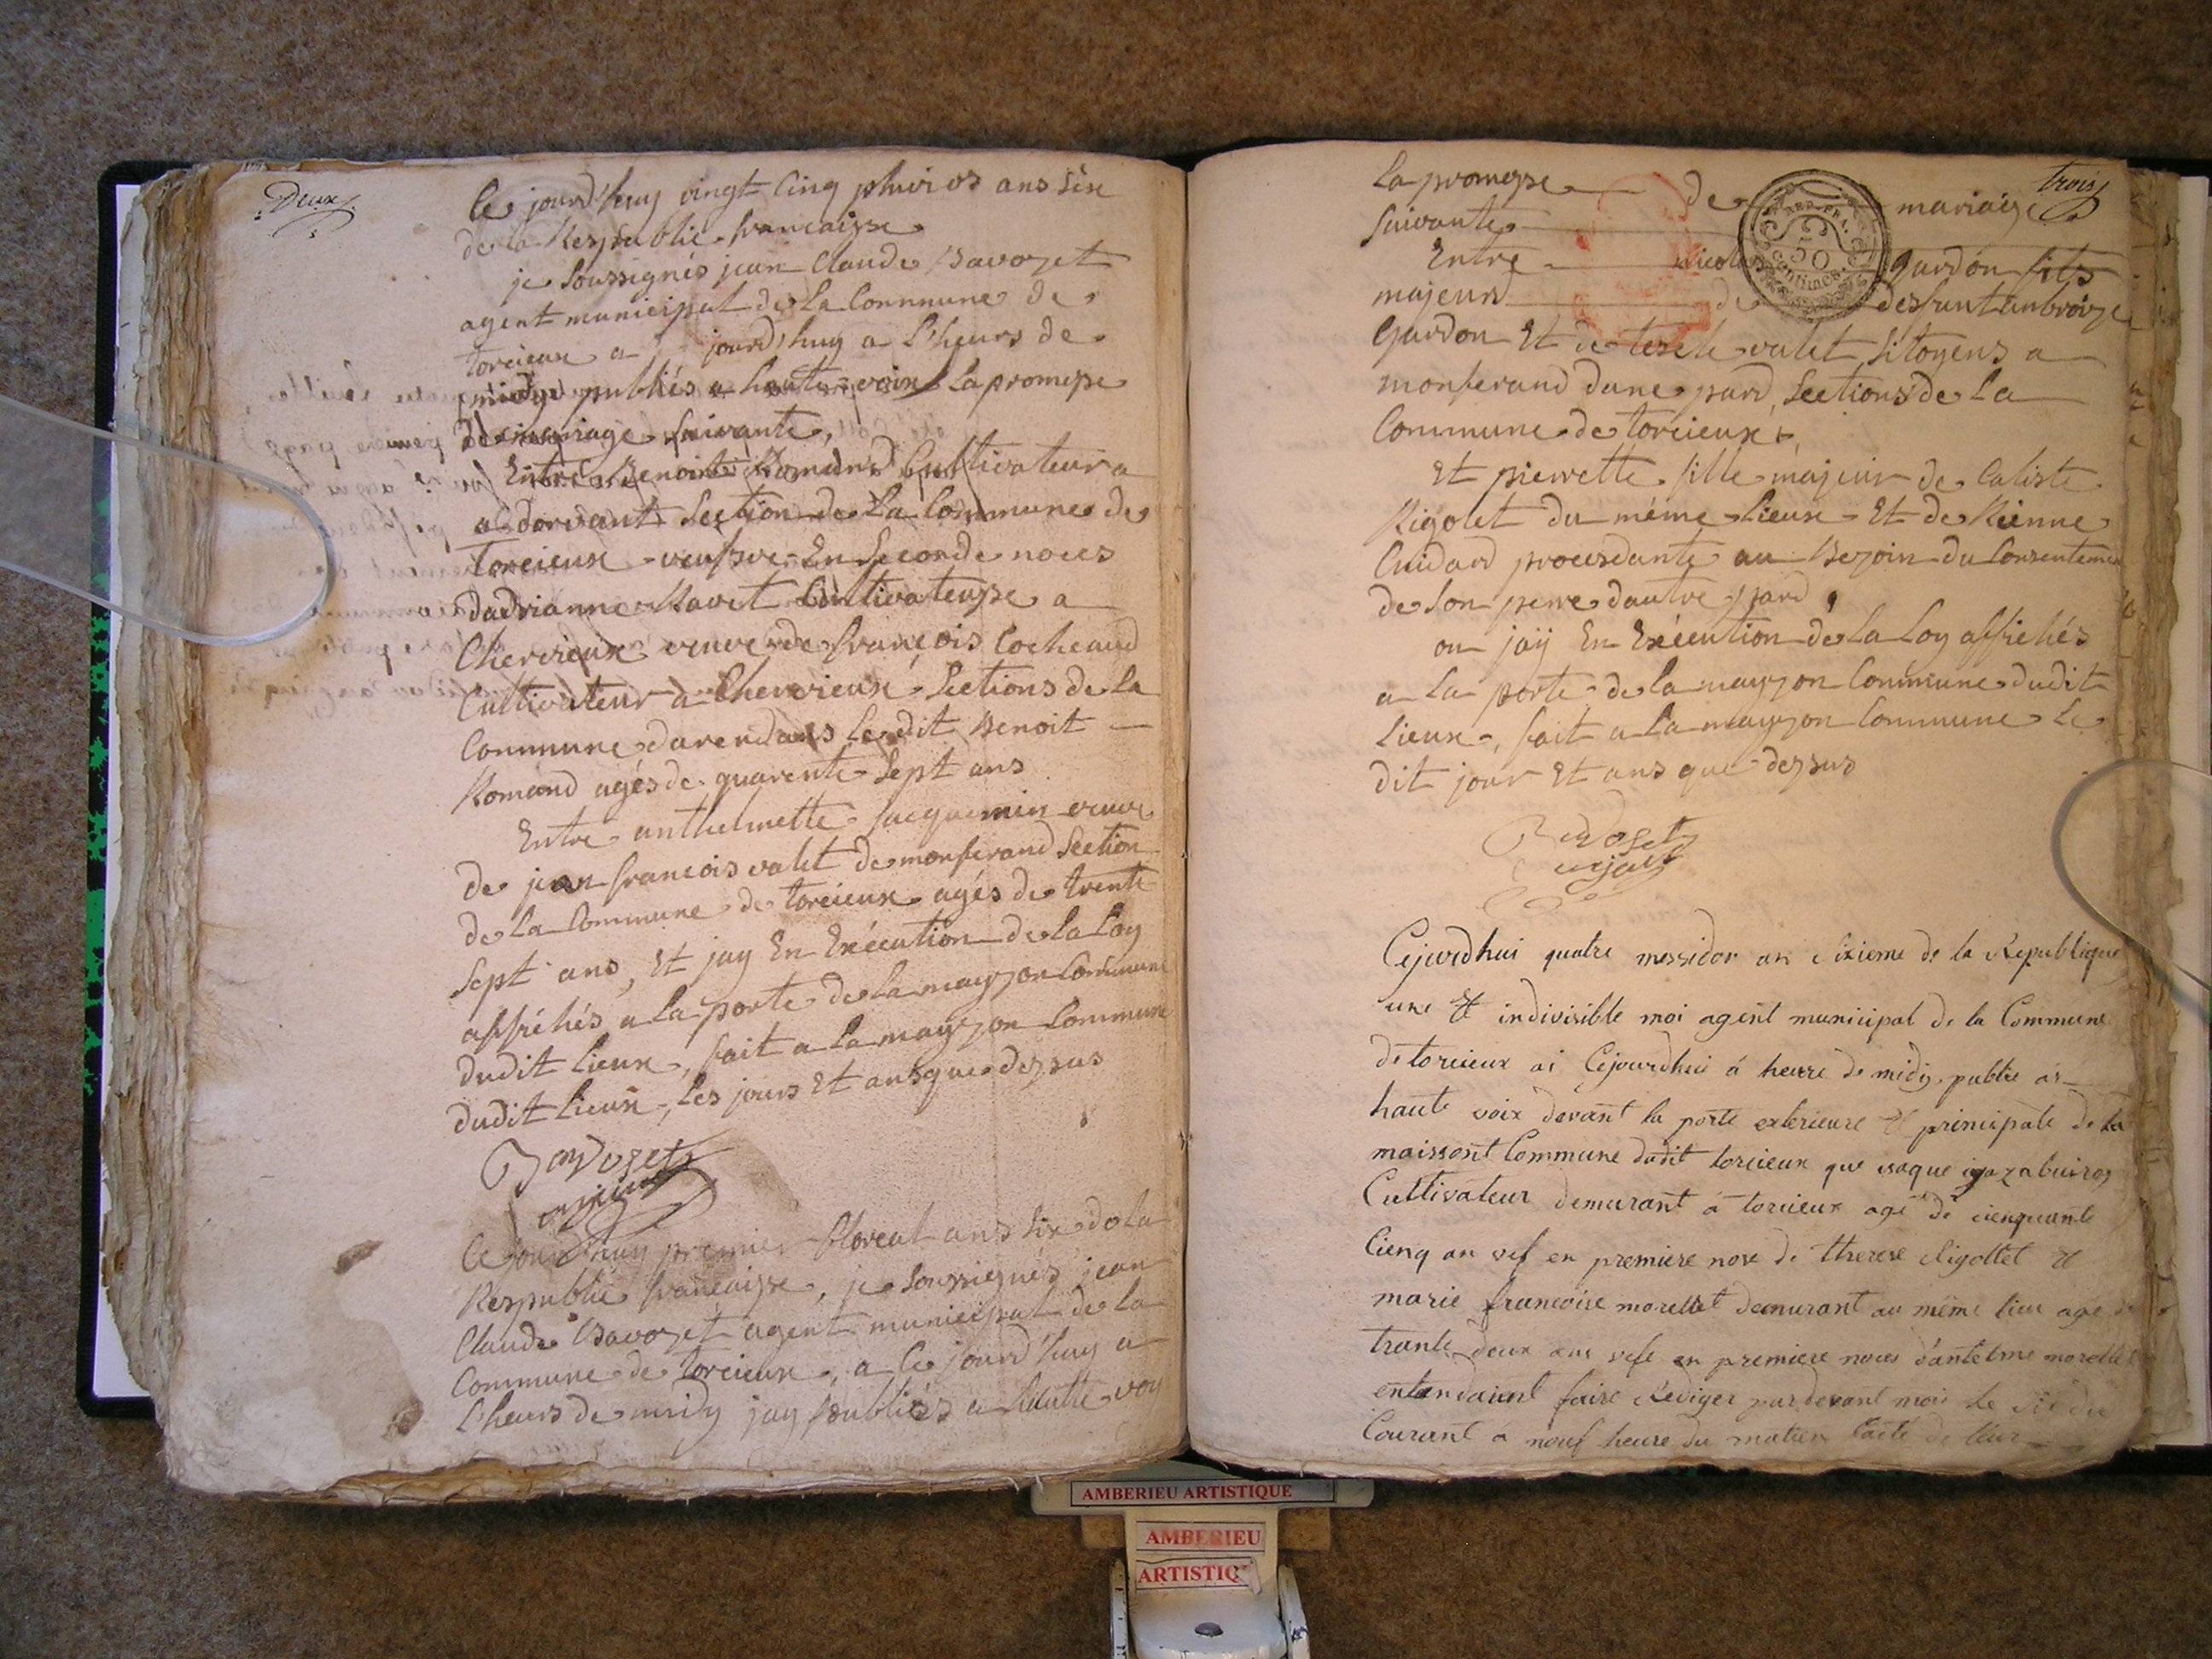 Deux
Ce jourd'huy vingt Cinq pluvios ans Six
de la Respublic francaisse
je Soussignés jean Claude Bavozet
agent municipal de la Commune de
torcieux a jourd'huy a L'heurs de
midy publiés a haute voix La promesse
de mariage Suivante,
Entre Benoit Romand Cultivateur a
a dorvant Section de La Commune de
Torcieux veufve En Seconde noces
dadrianne Ravet Cultivateusse a
Chervieux veuve de françois Cocheaud
Cultivateur a Chervieux Sections de la
Commune darendans Le dit Benoit
Romand agés de quarente Sept ans
Entre anthelmette jacquemin veuve
de jean francois valet de monferand Section
de La Commune de torcieux agés de trente
Sept ans, Et jay En Exécution de La Loy
affichés a La porte de La mayzon Commune
dudit Lieux, fait a La mayzon Commune
dudit Lieux, Les jours Et ans que dezsus
Bavozet
Ce jourd'huy premier floreal ans Six de la
Respublic francaisse, je Soussignés jean
Claude Bavozet agent municipal de la
Commune de torcieux, a Ce jourd'huy a
L'heurs de midy jay publiés a haute voy
trois
La promesse de mariage
Suivante
REP. FRA.
50
centimes
Entre Gardon fils
majeurs de desfunt ambroize
Gardon Et de valet Sitoyens a
monferand dune pard, Sections de La
Commune de torcieux
Et pierrette fille majeur de Caliste
Rigolet du même Lieux Et de
Cuidard procesdante au Bezoin du Consentement
de Son perre dautre pard
ou jaÿ En Exécution de La Loy affichés
a La porte de La mayzon Commune dudit
Lieux, fait a La mayzon Commune Le
dit jour Et ans que dezsus
Bavozet
Cejourdhui quatre messidor an Sixieme de la Republique
une et indivisible moi agent municipal de la Commune
de torcieux ai Cejourdhui á heure de midy publie a
haute voix devant la porte exterieure et principale de la
maissont Commune dudit torcieux que
Cultivateur demurant á torcieux agé de cienquante
Cienq an vef en premiere nose de therese Rigottet et
marie francoise morellet demurant au même lieu age de
trante deux ans vefe en premiere noces d'antelme morellet
entandaient faire Rediger pardevant moi le six du
Courant á neuf heure du matin lacte de leur
AMBERIEU ARTISTIQUE
AMBERIEU
ARTISTIQ